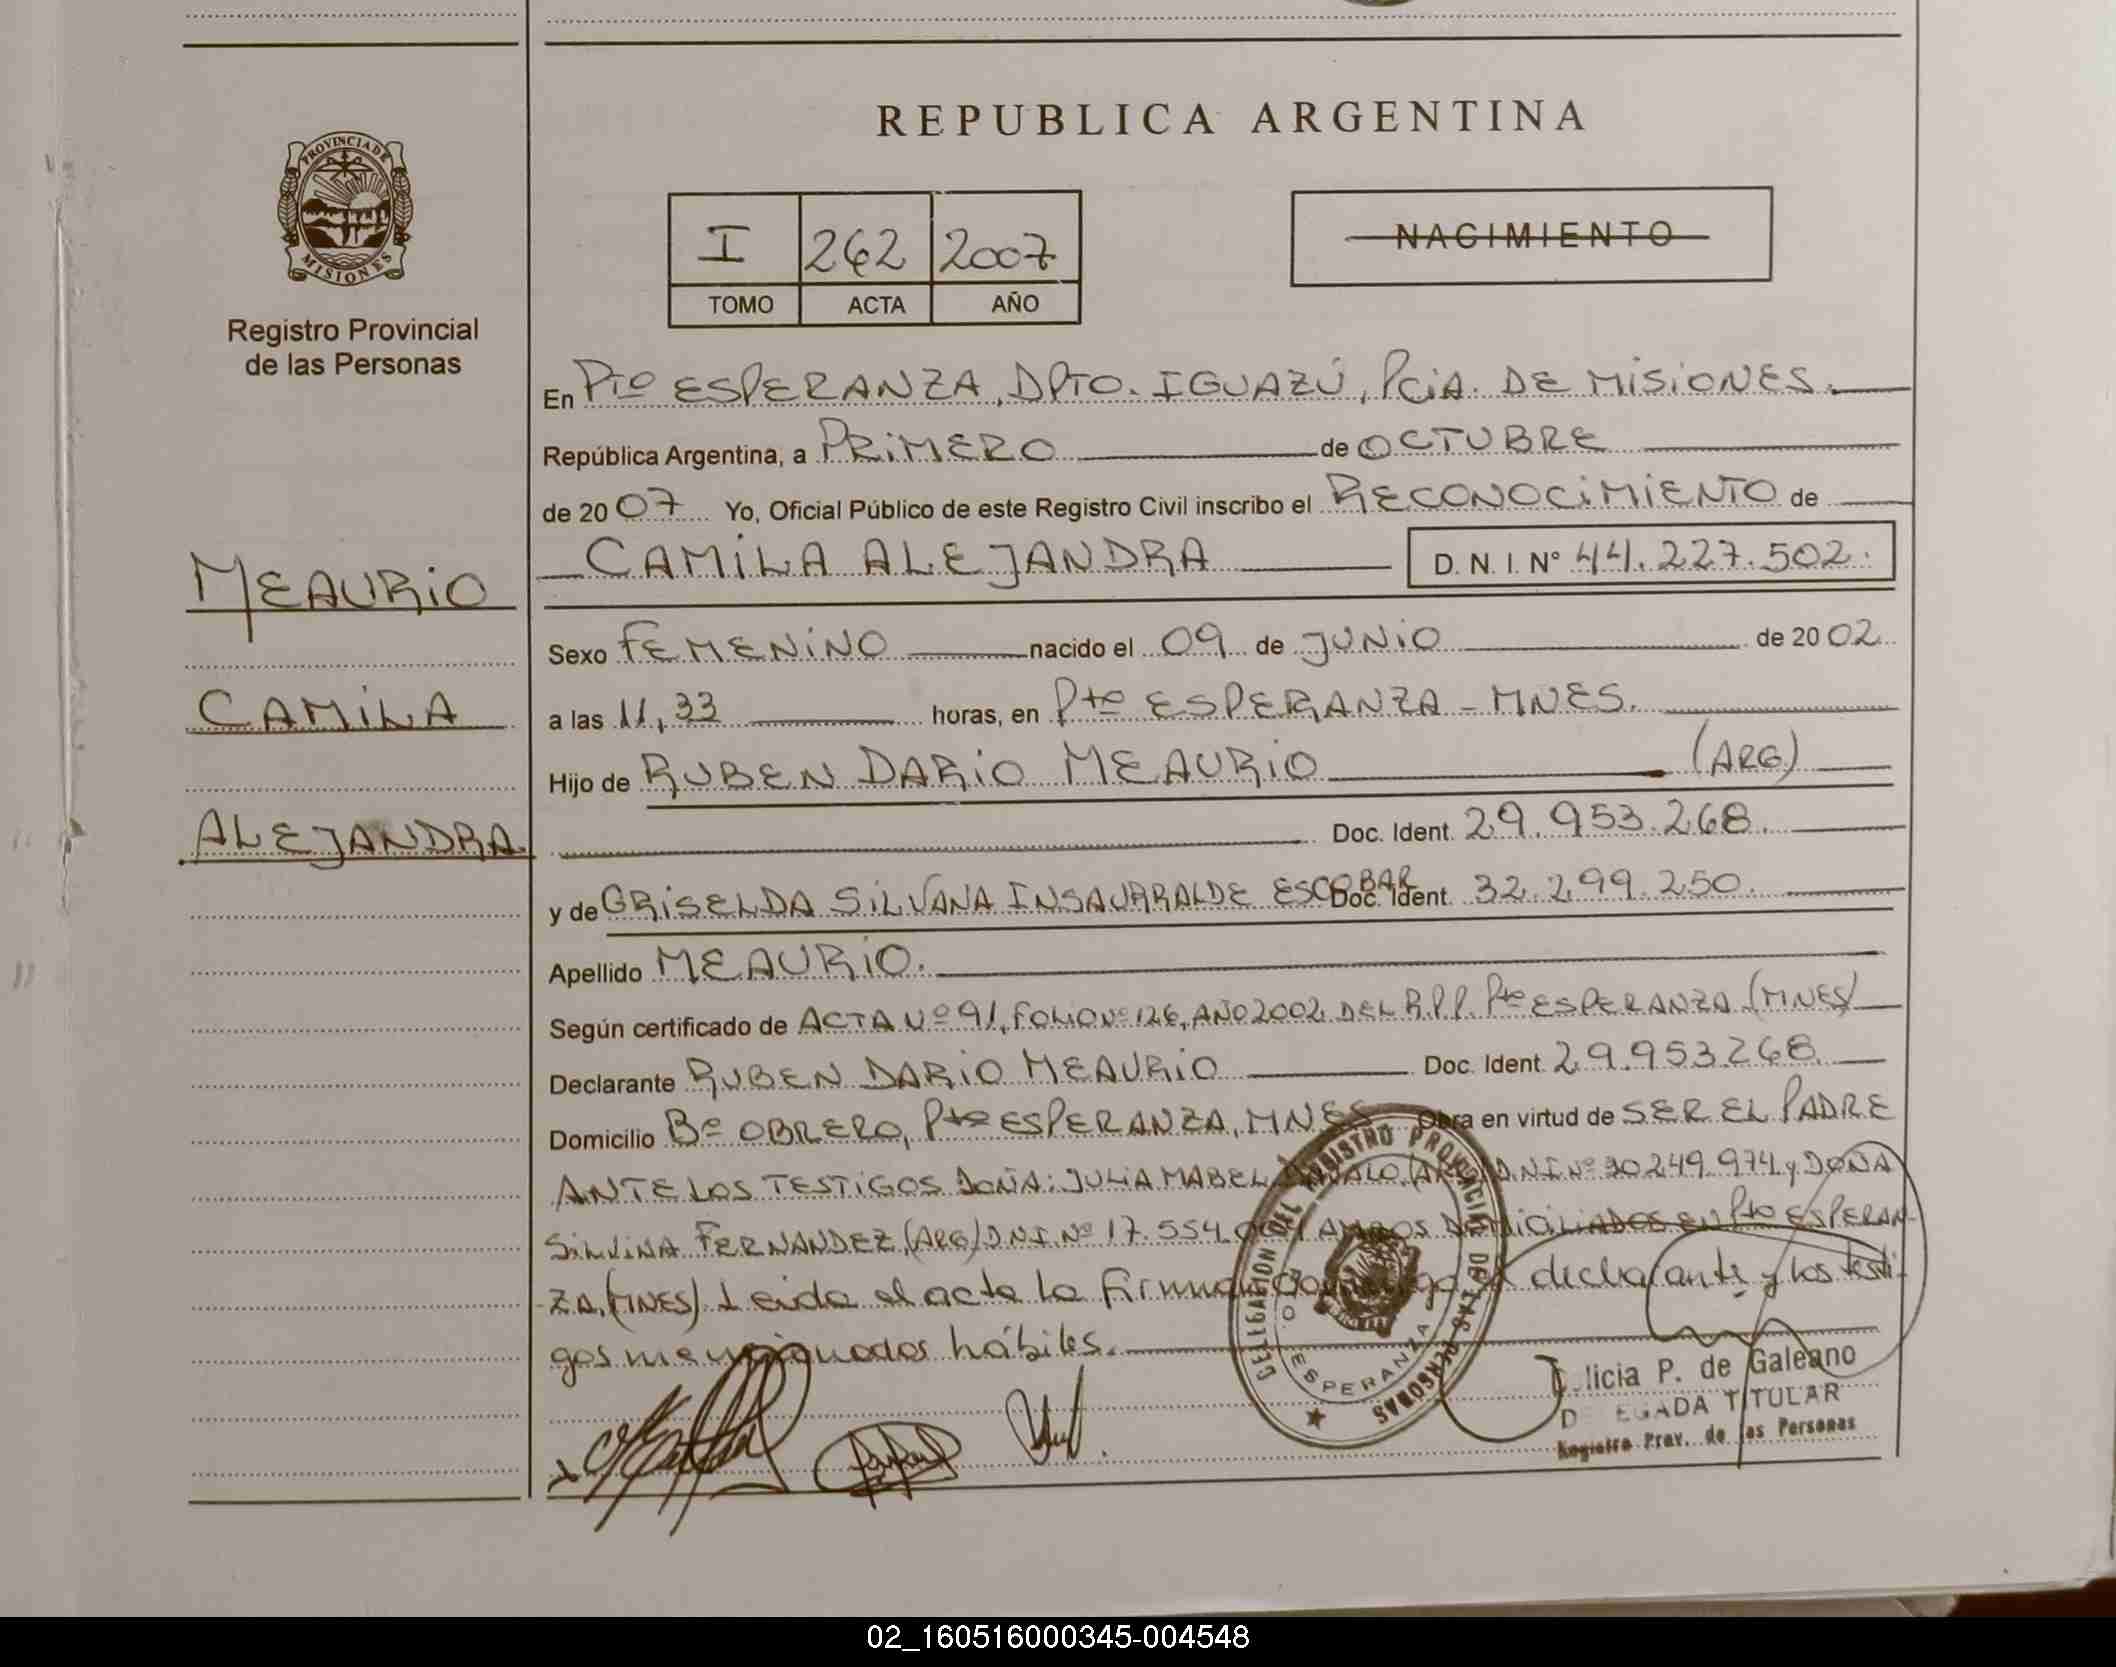 REPUBLICA ARGENTINA
PROVINCIA DE MISIONES
Registro Provincial
de las Personas
I 262 2007
TOMO ACTA AÑO
NACIMIENTO
MEAURIO
CAMILA
ALEJANDRA
En Pto ESPERANZA, DPTO. IGUAZÚ, PCiA. DE MISIONES.
República Argentina, a PRIMERO de OCTUBRE
de 2007 Yo, Oficial Público de este Registro Civil inscribo el RECONOCIMIENTO de
CAMILA ALEJANDRA D. N. I. Nº 44.227.502.
Sexo FEMENINO nacido el 09 de JUNIO de 2002
a las 11,33 horas, en Pto ESPERANZA - MNES.
Hijo de RUBEN DARIO MEAURIO (ARG)
Doc. Ident. 29.953.268
y de GRISELDA SILVANA INSAURRALDE ESCOBAR Doc. Ident. 32.299.250.
Apellido MEAURIO.
Según certificado de ACTA Nº 91, FOLIO Nº 126, AÑO 2002 DEL R.P.P. Pto ESPERANZA (MNES)
Declarante RUBEN DARIO MEAURIO Doc. Ident. 29.953268
Domicilio Bº OBRERO, Pto ESPERANZA, MNES Obra en virtud de SER EL PADRE
ANTE LOS TESTIGOS DOÑA: JULIA MABEL D.N.I Nº 249.974 y DOÑA
SILVINA FERNANDEZ, (ARG) D.N.I. Nº 17.554. AMBOS DOMICILIADOS EN Pto ESPERAN-
ZA, (MNES). Leída el acta la firman el declarante y los testi-
gos mencionados hábiles.
DELEGACION DEL REGISTRO PROVINCIAL DE LAS PERSONAS
ESPERANZA
licia P. de Galeano
DELEGADA TITULAR
Registro Prov. de las Personas
02_160516000345-004548